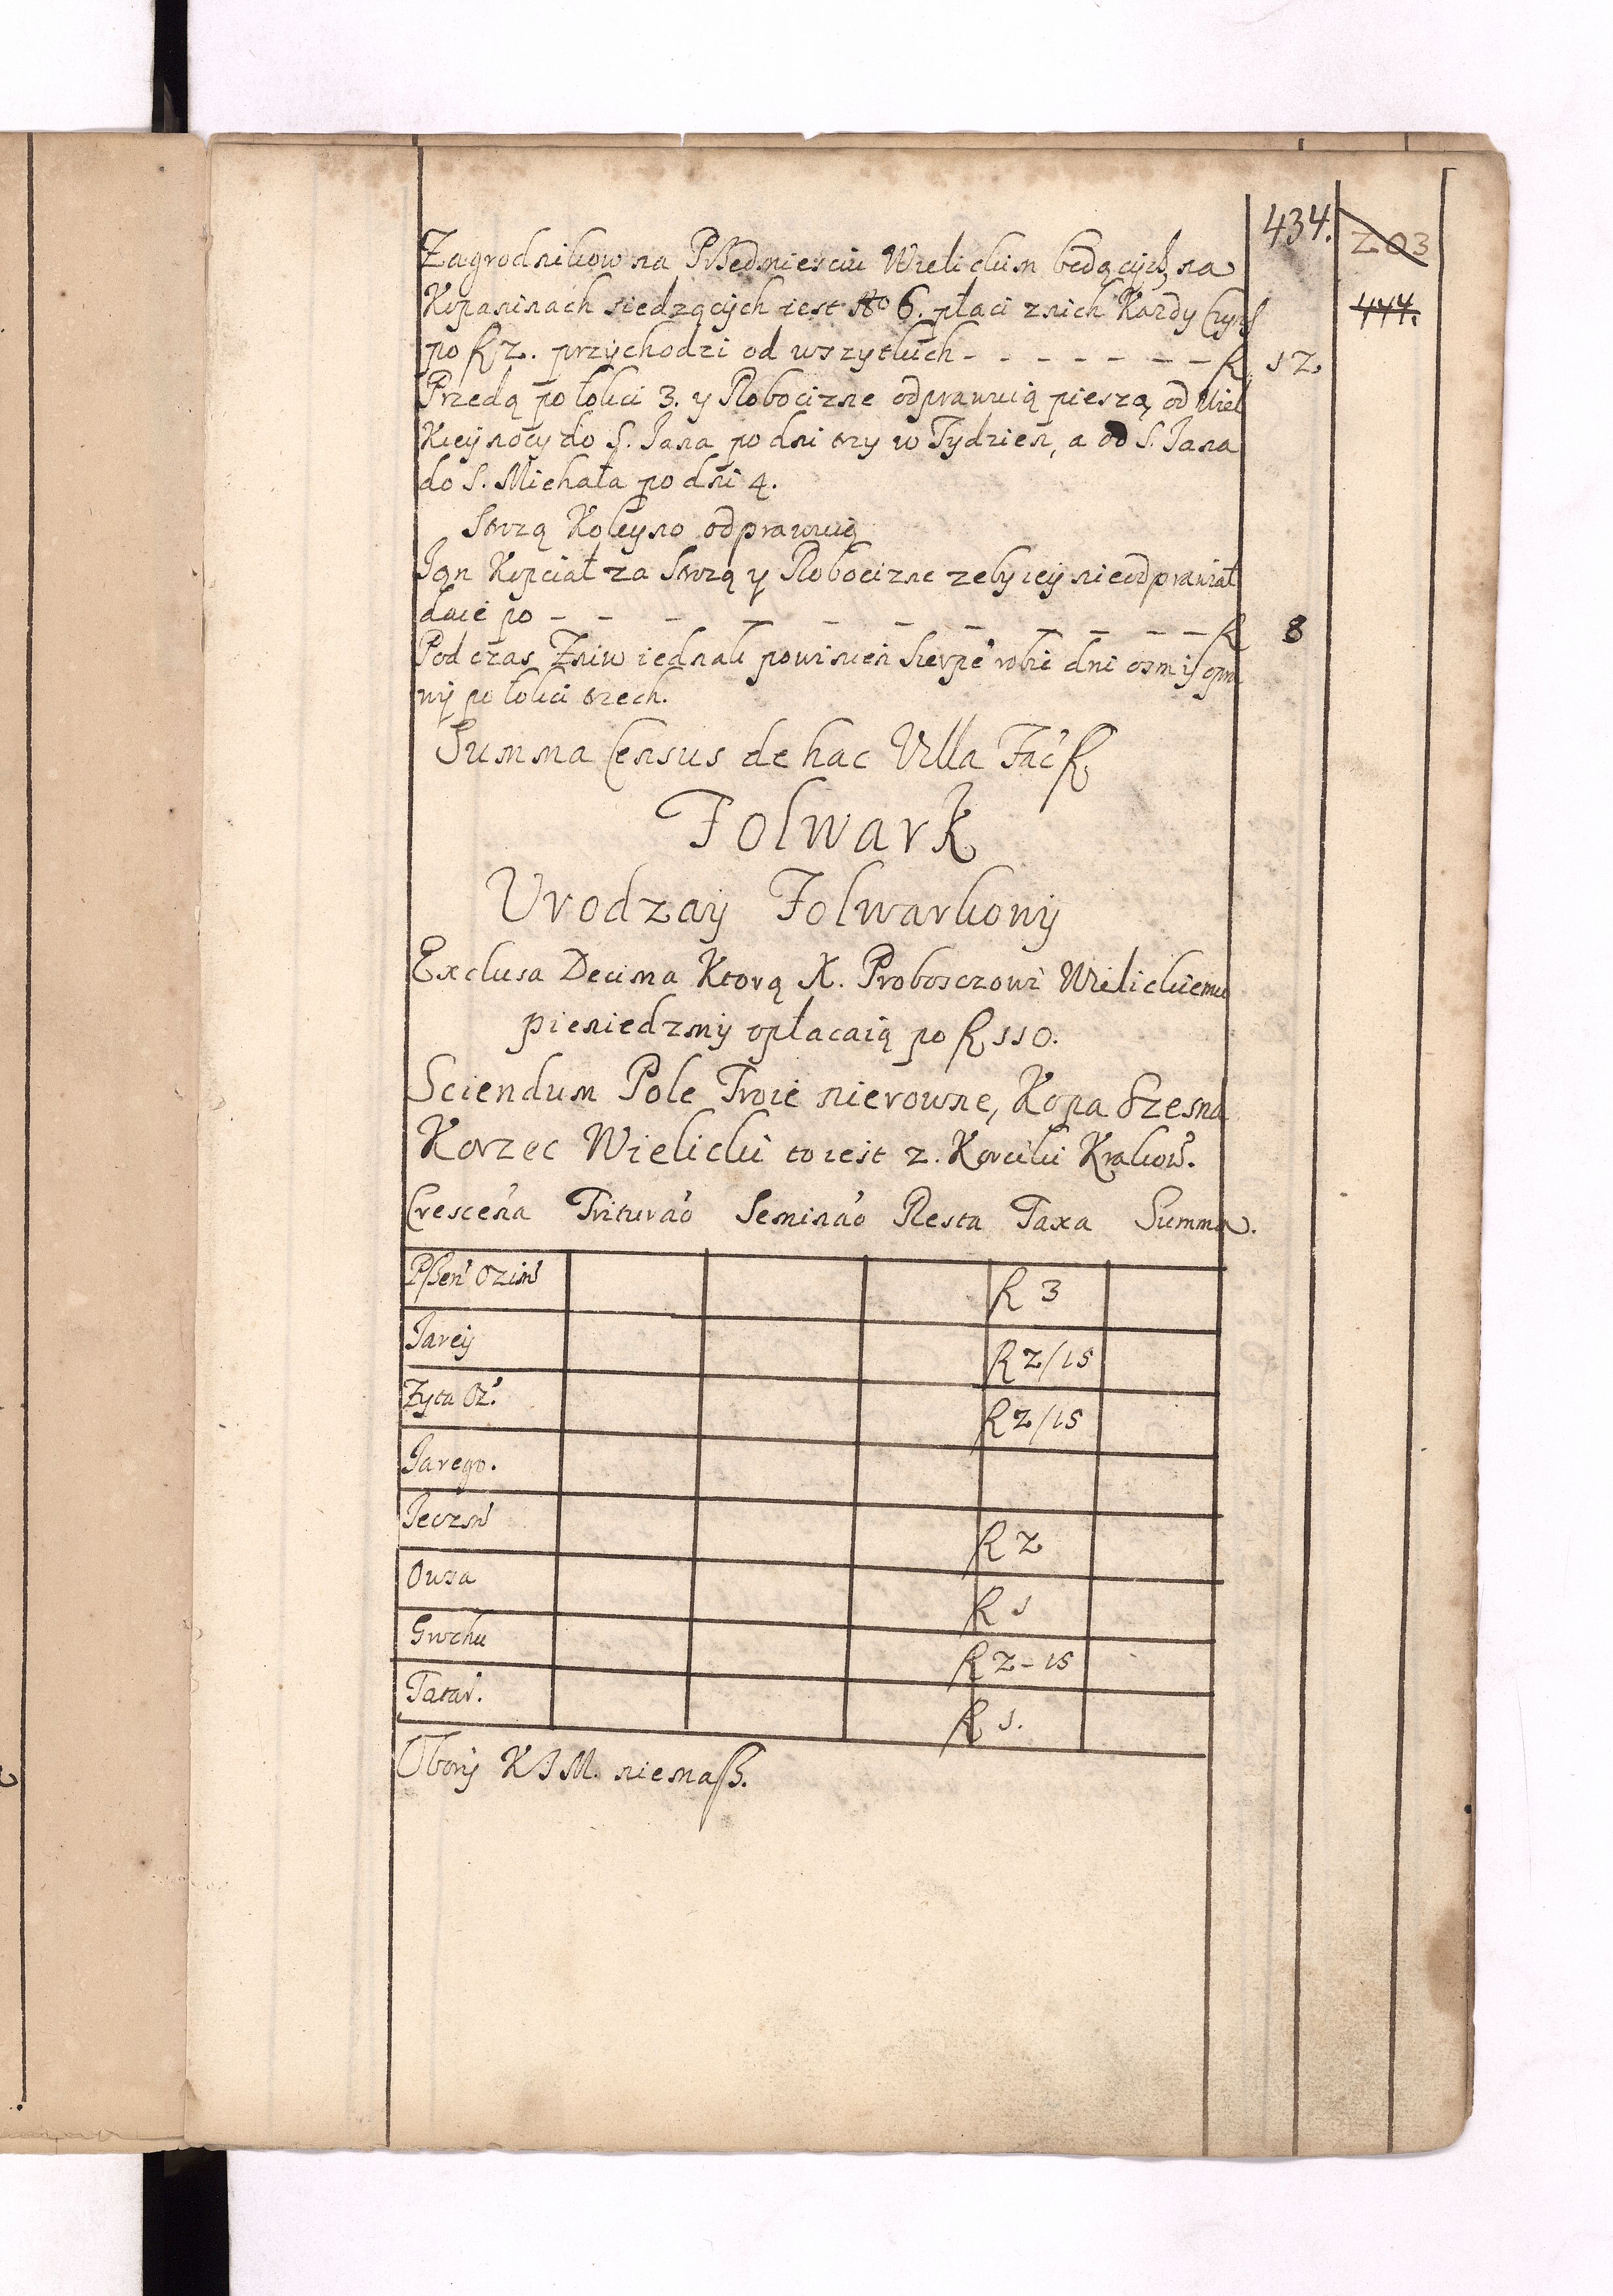 434. 203
Zagrodnikow na Pßedmiesciu Wielickim będących, na
Kopaninach siedzących iest No 6. płaci z nich Kazdy Czyns 444.
po fl 2. przychodzi od wszytkich - - - - - - - fl 12.
Przedą po łokci 3. y Robocizne odprawuią pieszą, od Wiel
Kieynocy do S. Jana po dni trzy w Tydzien, a od S. Jana
do S. Michała po dni 4.
Strozą Koleyno odprawuią
Jan Kopciał za Strozą y Robocizne zeby iey nieodprawiał
daie po - - - - - - - - - - - fl 8
Pod czas Zniw iednak powinien Sierpē robic dni osm y opra
wy po łokci trzech.
Summa Census de hac Villa Fac̃ fl
Folwark
Urodzay Folwarkowy
Exclusa Decima Ktorą X. Proboszczowi Wielickiemu
pieniedzmy opłacaią po fl 110.
Sciendum Pole Troie nierowne, Kopa Trzesna
Korzec Wielicki to iest 2. Korcziki Krakow̃.
Crescen̄a Triturāo Semināo Resta Taxa Summa.
Pßen̄ Ozim̄ fl 3
Jarey fl 2/15
Zyta Oz̄. fl 2/15
Jarego.
Jeczm̄ fl 2
Owsa fl 1
Grochu fl 2-15
Tatar̄. fl 1.
Obory KJM. niemaß.